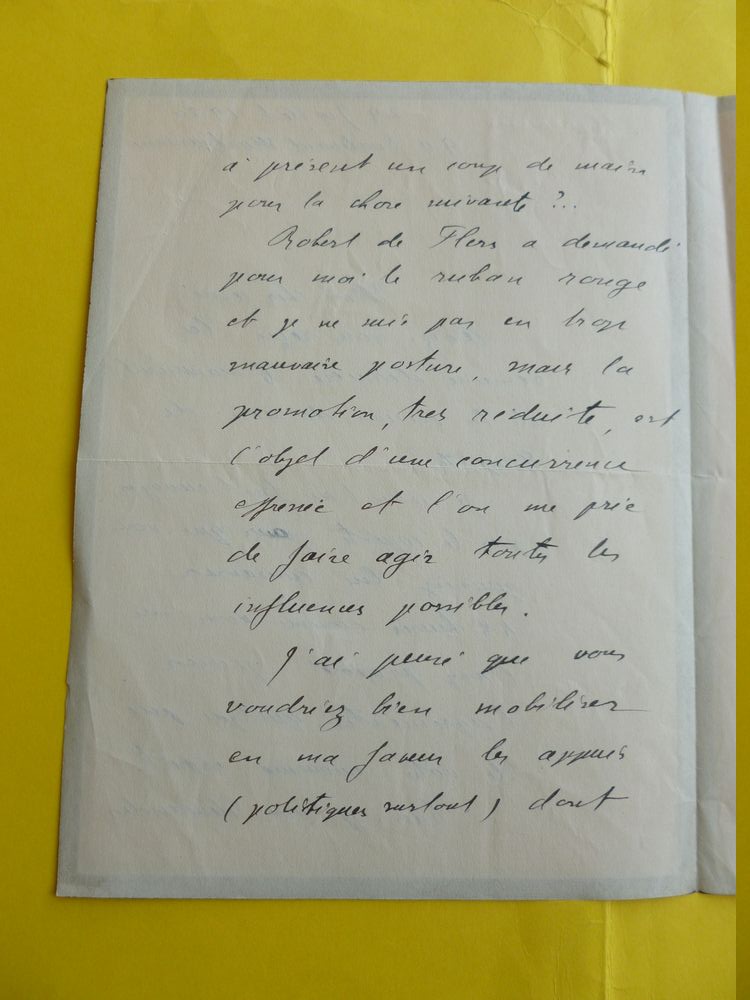 à présent un coup de main
pour la chose suivante ?..
Robert de Flers a demandé
pour moi le ruban rouge
et je ne suis pas en trop
mauvaise posture, mais la
promotion, très réduite, est
l'objet d'une concurrence
effrenée et l'on me prie
de faire agir toutes les
influences possibles.
J'ai pensé que vous
voudriez bien mobiliser
en ma faveur les appuis
(politiques surtout) dont